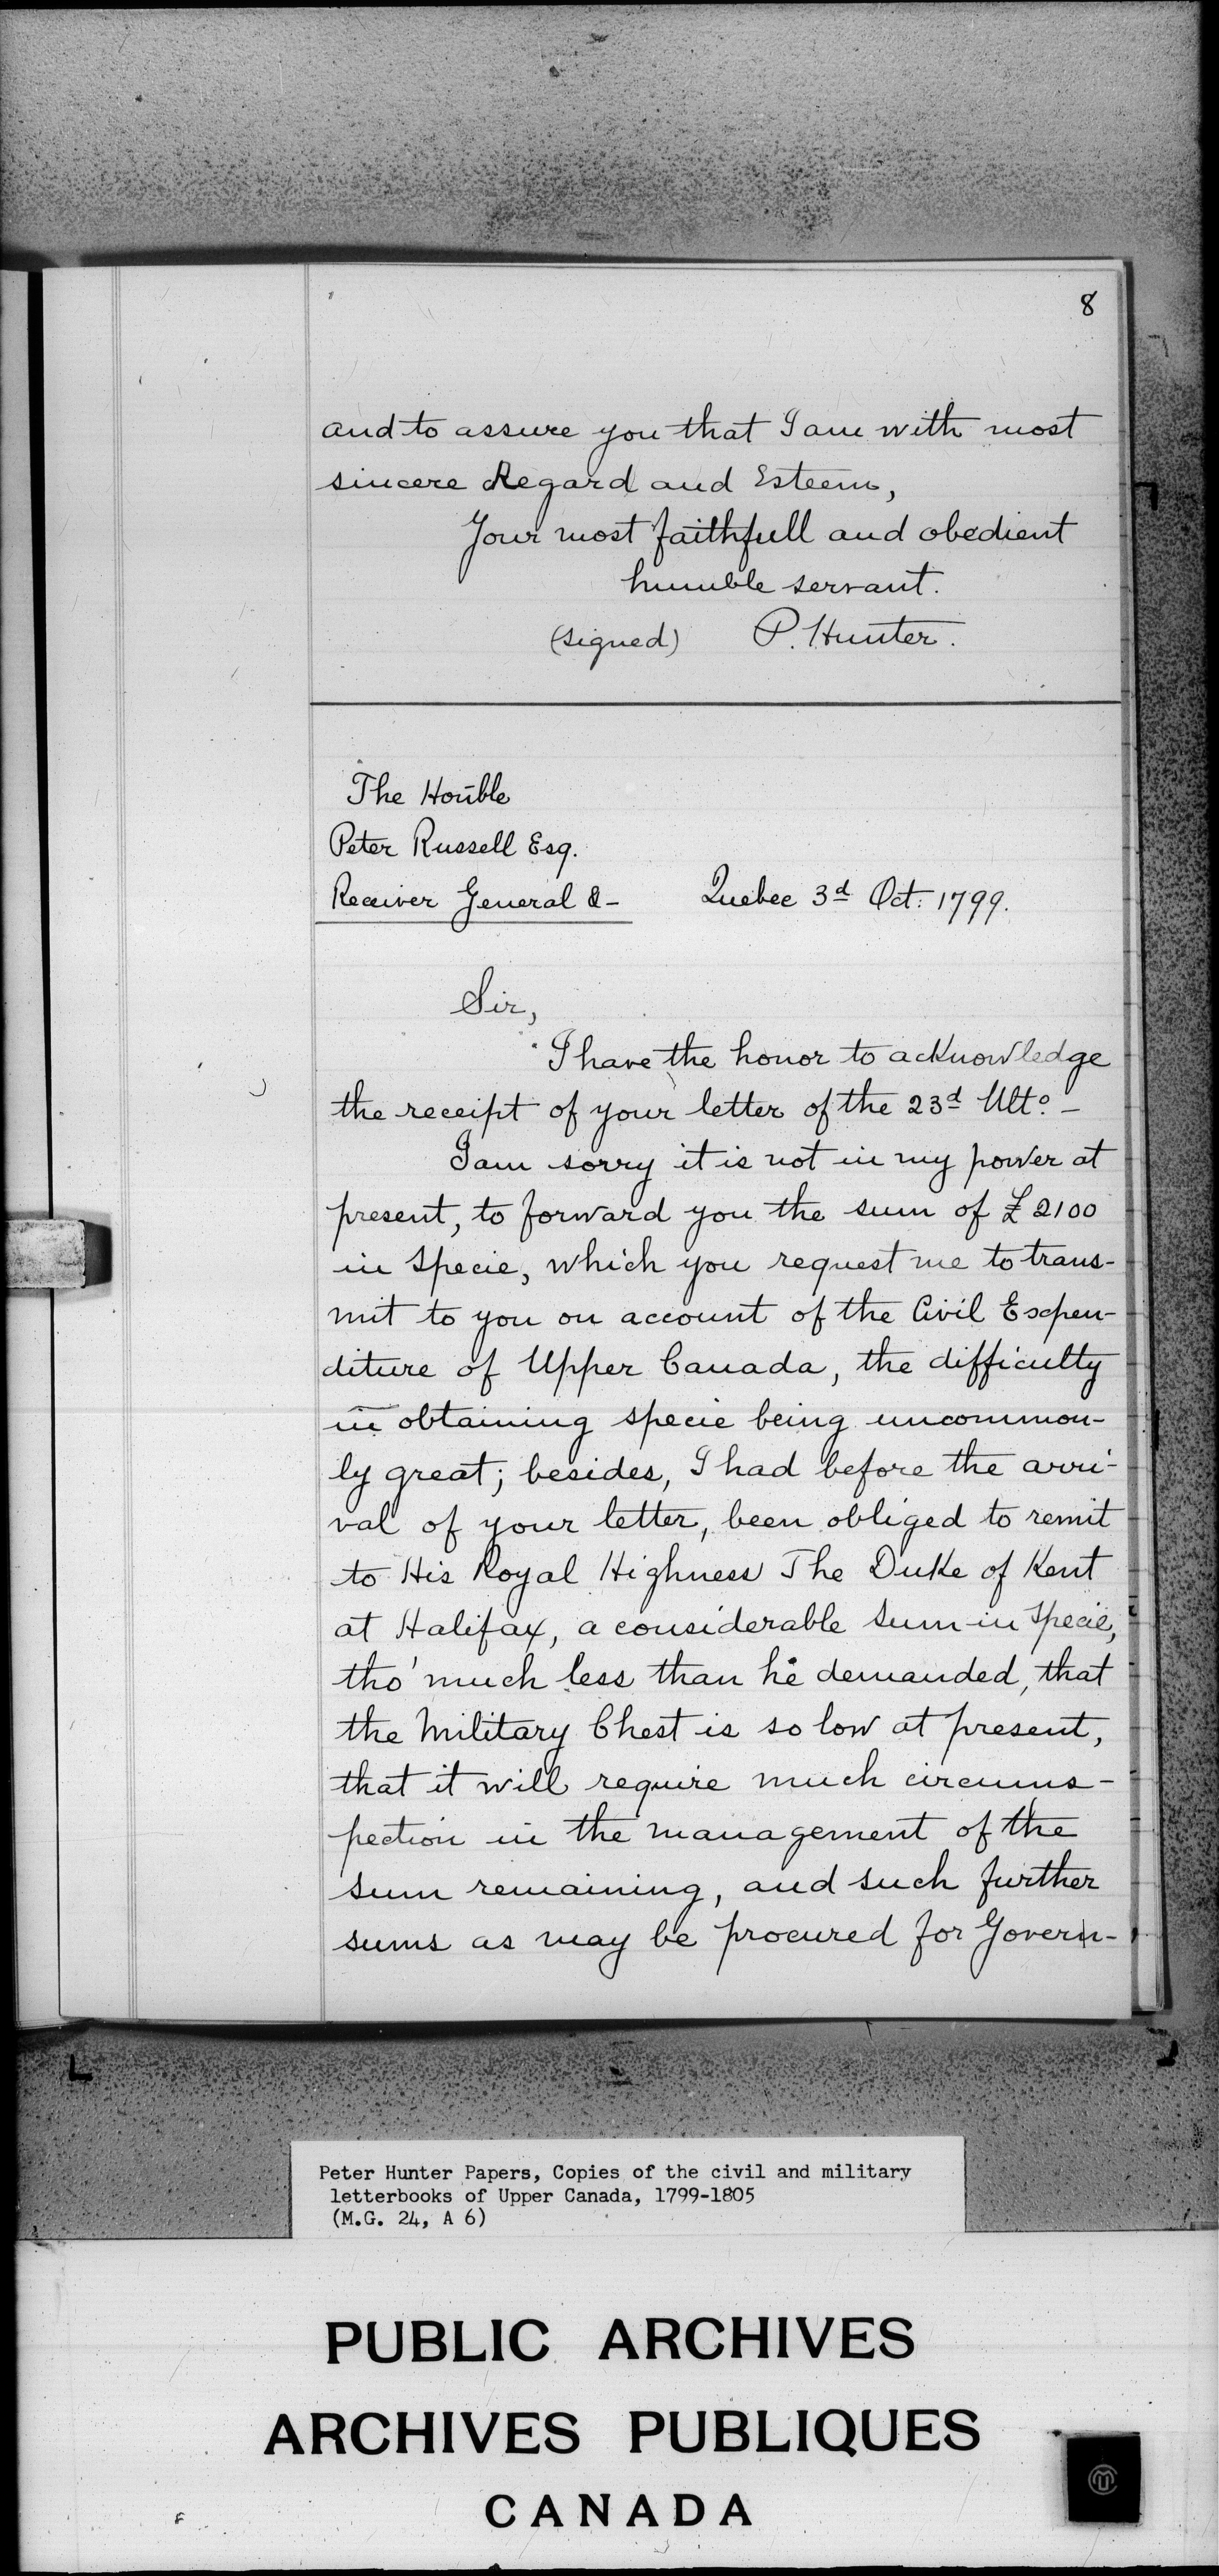 8
and to assure you that I am with most
sincere Regard and Esteem,
Your most faithfull and obedient
humble servant.
(signed) P. Hunter.
The Honble
Peter Russell Esq.
Receiver General &- Quebec 3d Oct: 1799.
Sir,
I have the honor to acknowledge
the receipt of your letter of the 23d Ulto. -
I am sorry it is not in my power at
present, to forward you the sum of £2100
in Specie, which you request me to trans-
mit to you on account of the Civil Expen-
diture of Upper Canada, the difficulty
in obtaining specie being uncommon-
ly great; besides, I had before the arri-
val of your letter, been obliged to remit
to His Royal Highness The Duke of Kent
at Halifax, a considerable Sum in Specie,
tho' much less than he demanded, that
the Military Chest is so low at present,
that it will require much circums-
pection in the management of the
sum remaining, and such further
sums as may be procured for Govern-
Peter Hunter Papers, Copies of the civil and military
letterbooks of Upper Canada, 1799-1805
(M.G. 24, A 6)
PUBLIC ARCHIVES
ARCHIVES PUBLIQUES
CANADA